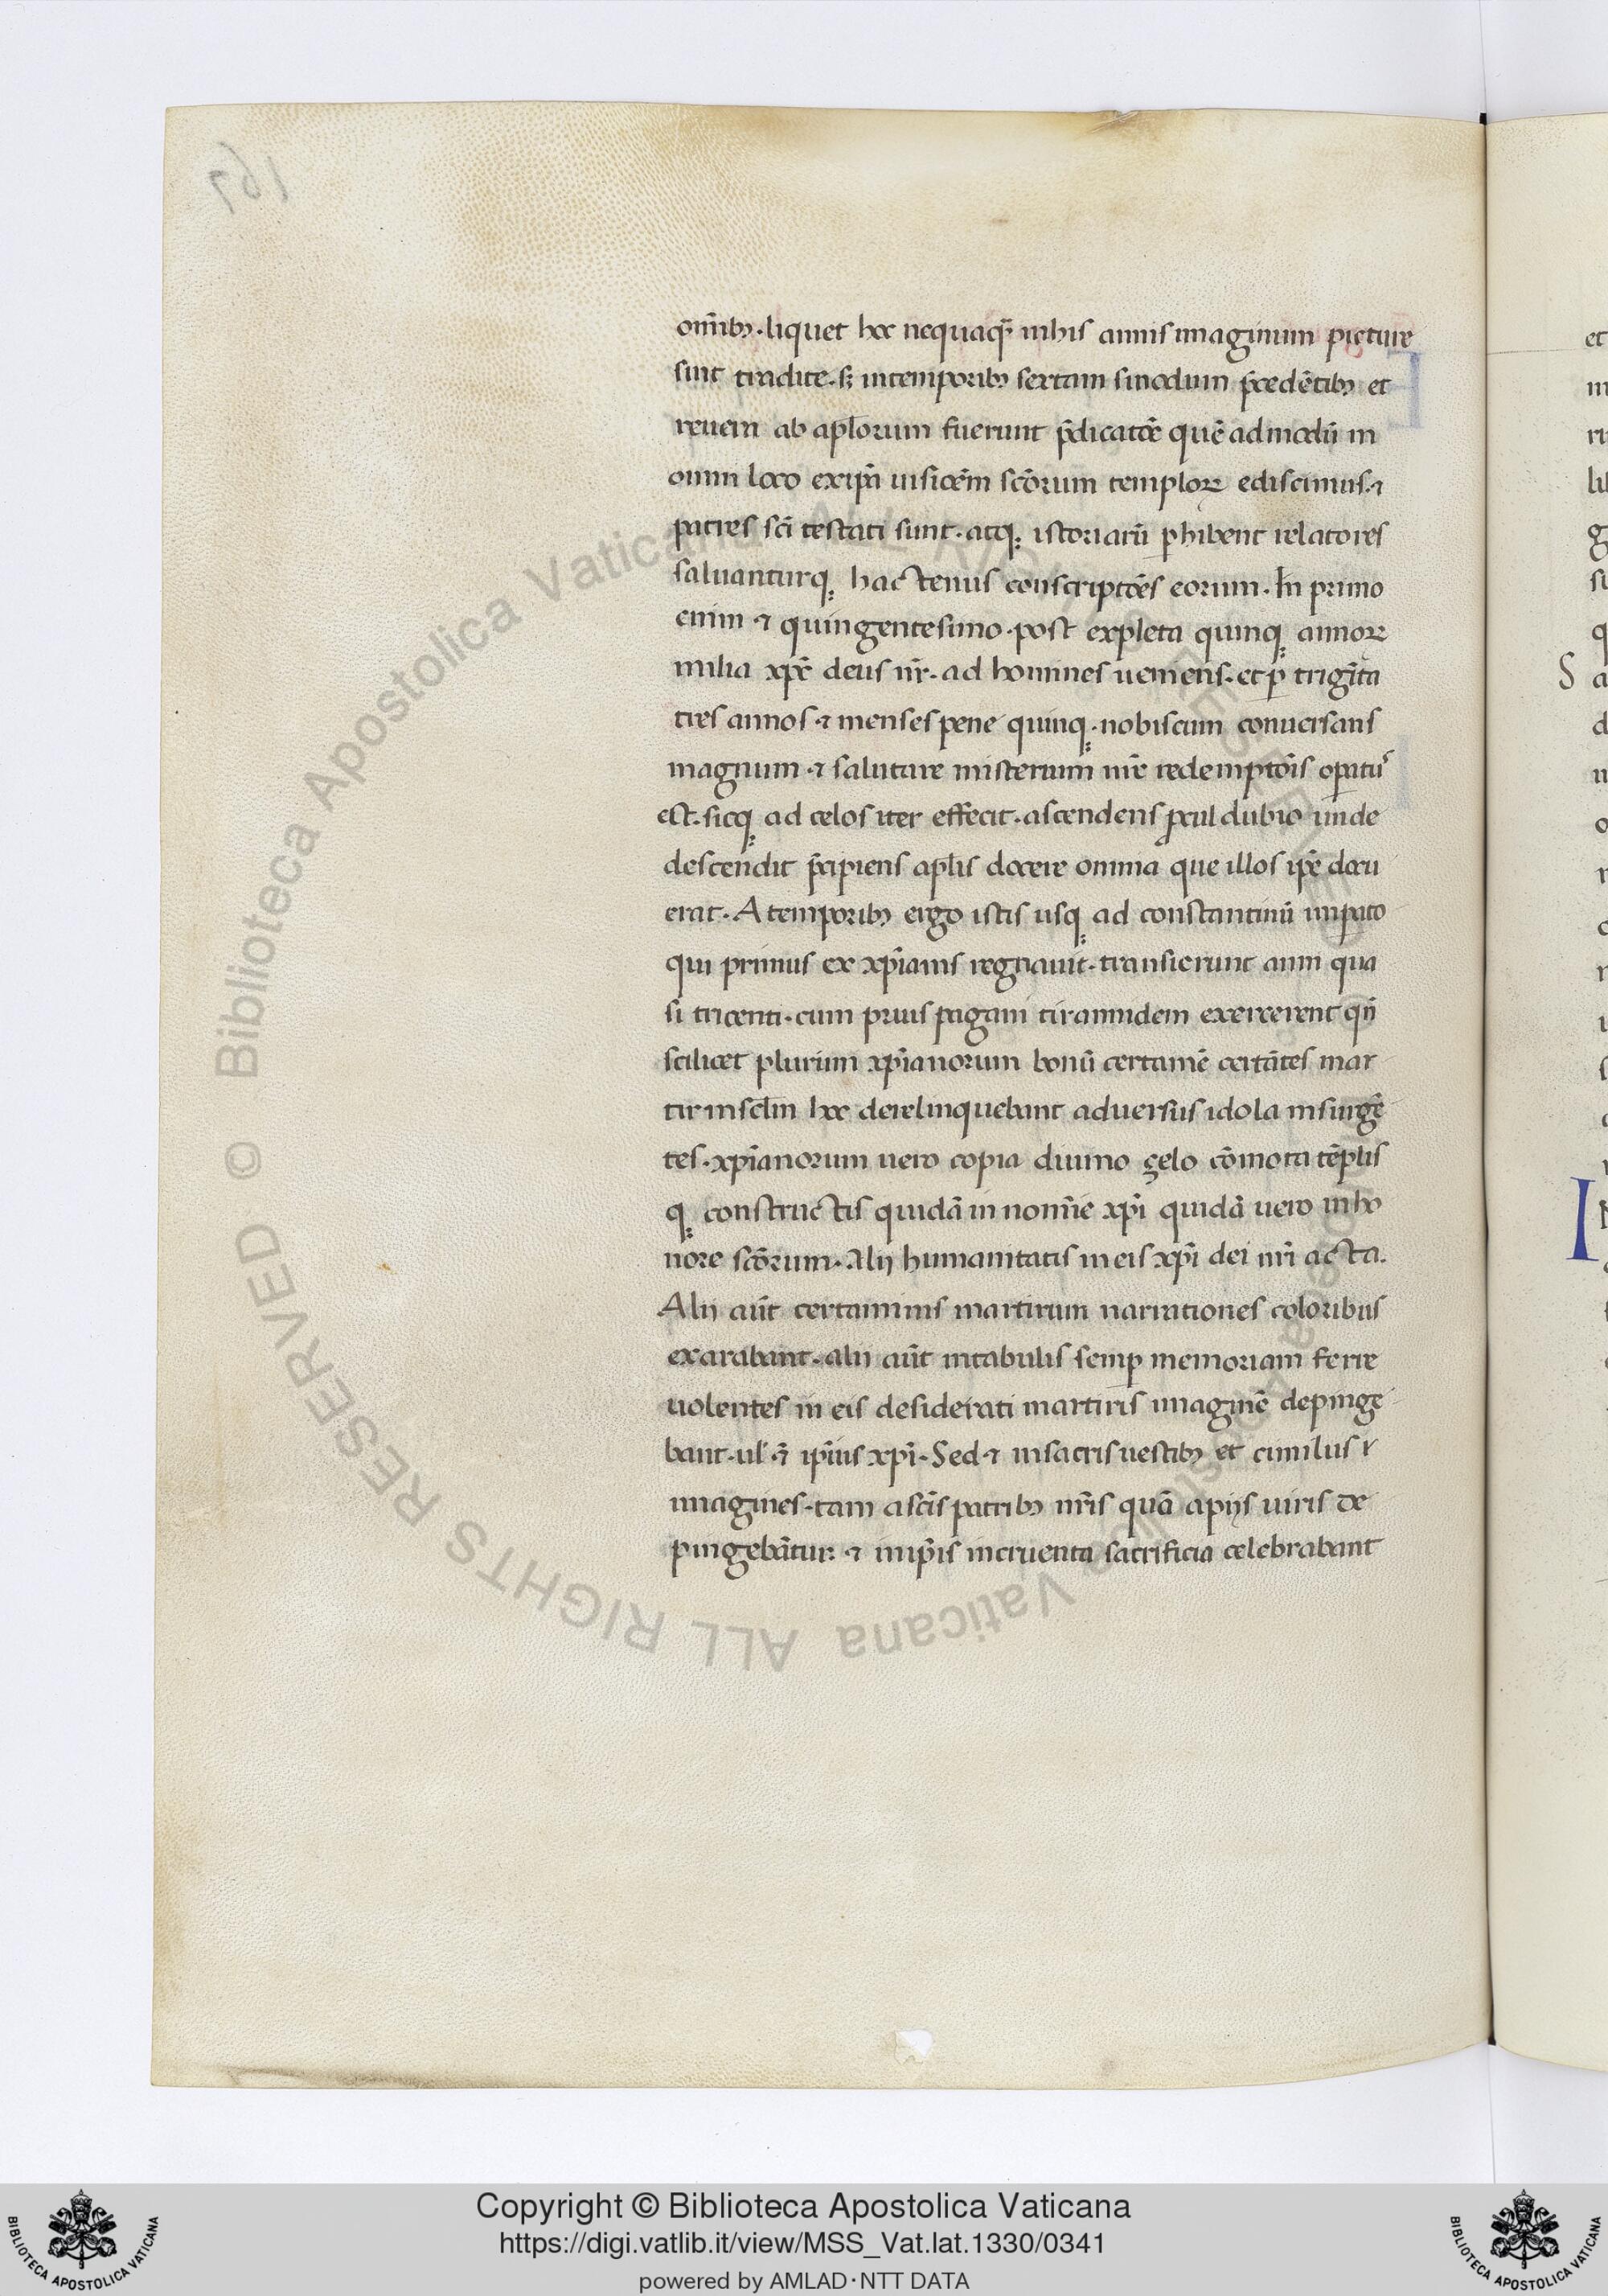 167
om̄ibꝫ·liquet hec nequaq̄ inhis annis imaginum picture
sint tradite·sꝫ intemporibꝫ sextam sinodum p̄cedētibꝫ et
reuera ab aplorum fuerunt p̄dicatōe quē admodū in
omni loco exip̄a uisiōem scōrum temploꝝ ediscimus·⁊
patres sc̄i testati sunt·atqꝫ istoriarū ꝑhibent relatores
saluanturqꝫ hactenus conscriptōes eorum·In primo
enim ⁊ quingentesimo·post expleta quinqꝫ annoꝝ
milia xp̄c deus nr̄·ad homines ueniens·et ꝑ trigīta
tres annos·⁊ menses pene quinqꝫ·nobiscum conuersans
magnum·⁊ salutare misterium nr̄e redemptōis oꝑatuꝰ
est·sicqꝫ ad celos iter effecit·ascendens ꝓcul dubio unde
descendit p̄cipiens aplīs docere omnia que illos ip̄e docu
erat·A temporibꝫ ergo istis usqꝫ ad constantinū imꝑato
qui primus ex xp̄ianis regnauit·transierunt anni qua
si tricenti·cum prius pagani tirannidem exercerent qn̄
scilicet plurimi xp̄ianorum bonū certamē certātes mar
tir
hec derelinquebant aduersus idola insurgē
tes·xp̄ianorum uero copia diuino çelo cōmota tēplis
qꝫ constructis quidā in nomīe xp̄i quidā uero inho
nore scōrum·Alij humanitatis in eis xp̄i dei nr̄i acta.
Alij aūt certaminis martirum narrationes coloribus
exarabant·alij aūt intabulis semꝑ memoriam ferre
uolentes in eis desiderati martiris imaginē depinge
bant·ul·⁊̄ ip̄ius xp̄i·Sed·⁊ insacris uestibꝫ et cimilus r
imagines·tam asc̄is patribꝫ nr̄is quā apijs uiris de
pingebātur·⁊ inip̄is incruenta sacrificia celebrabant
et
S
I
© Biblioteca Apostolica Vaticana ALL RIGHTS RESERVED
Copyright © Biblioteca Apostolica Vaticana
https://digi.vatlib.it/view/MSS_Vat.lat.1330/0341
powered by AMLAD·NTT DATA
BIBLIOTECA APOSTOLICA VATICANA
BIBLIOTECA APOSTOLICA VATICANA